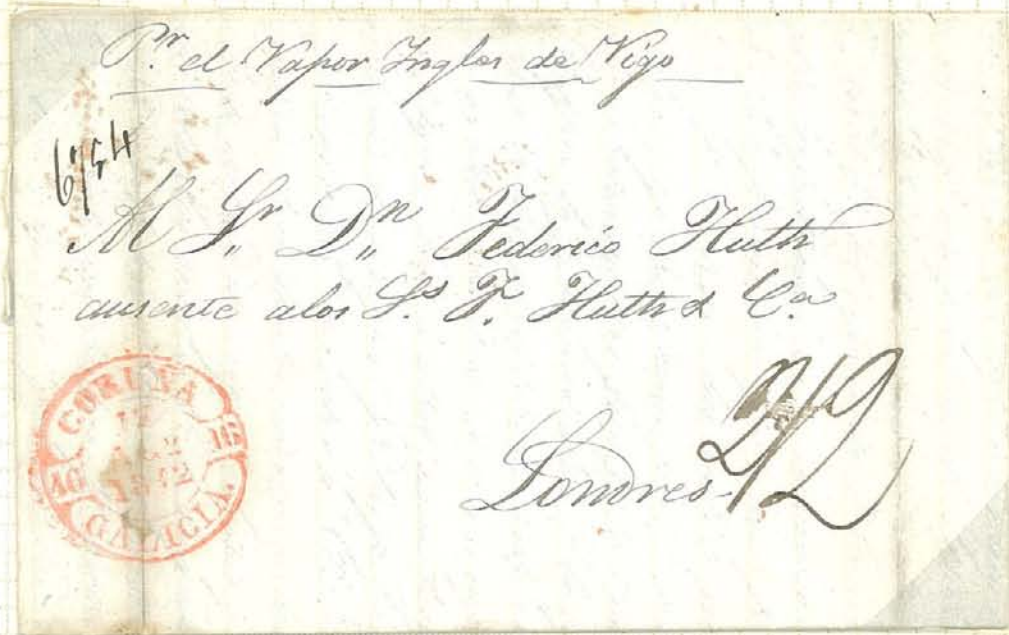 Pr. el Vapor Ingles de Vigo
6/54
Al Sr. Dn. Federico Huth
ausente alos Ss. F. Huth & Ca.
2/2
Londres.
CORUÑA
12
1842
GALICIA